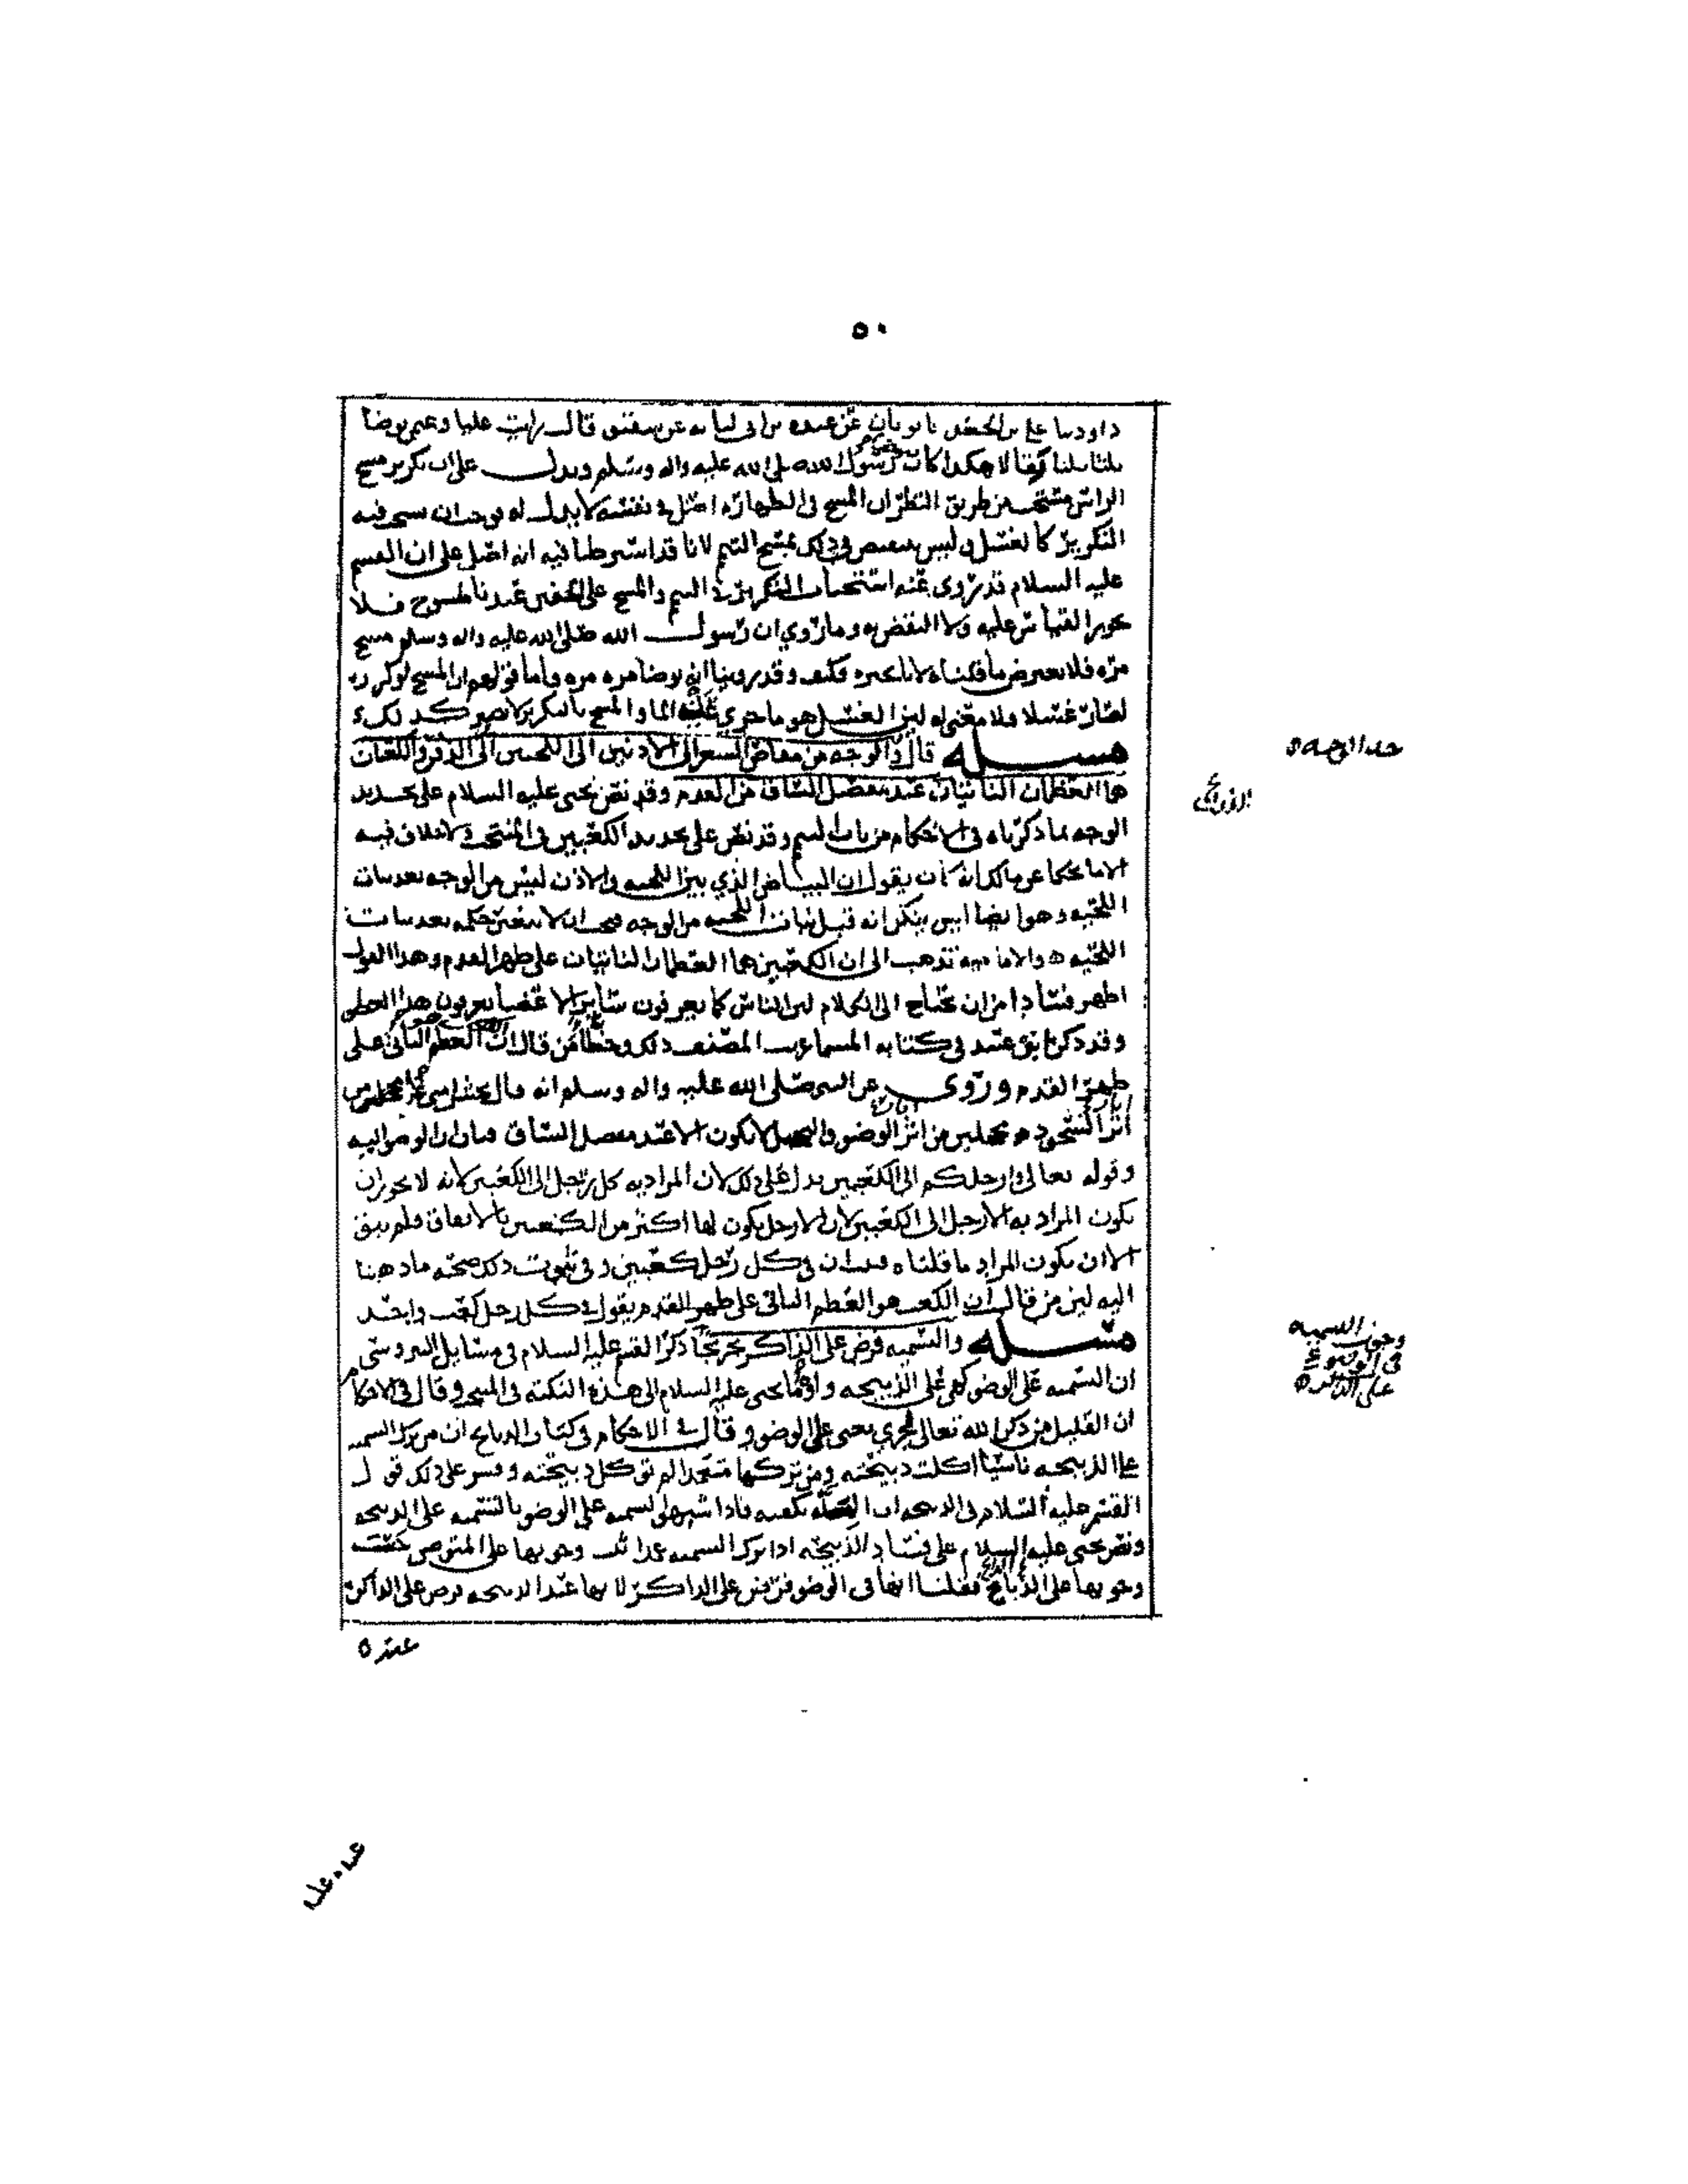 ٥٠
داود بنا علي بن الجعد بن ثوبان عن عبده بن ابي لبابه عن شقيق قال رايت عليا وعثمن توضا
ثلثا ثلثا وقالا هكذا كان وضو رسول الله صلى الله عليه واله وسلم ويدل على ان تكرير مسح
الراس مستحب من طريق النظر ان المسح في الطهاره اصل في نفسه لا بدل له فوجب ان يستحب فيه
التكرير كالغسل وليس ينتقض ذلك بمسح التيمم لانا قد اشترطنا فيه انه اصل على ان القسم
عليه السلام قد روى عنه استحباب التكرير في التيمم والمسح على الخفين عندنا منسوخ فلا
يجوز القياس عليه ولا النقض به وما روي ان رسول الله صلى الله عليه واله وسلم مسح
مره فلا يعترض ما قلناه لانا نجيزه وكيف وقد روينا انه توضا مره مره واما قولهم ان المسح لو كرر
لصار غسلا فلا معنى له لان الغسل هو ما جرى عليه الما والمسح بالتكرير لا يصير كذلك
مسـله قال والوجه من مقاص الشعر الى الاذنين الى اللحيين الى الذقن والكعبان
هما العظمان الناتيان عند مفصل الساق من القدم وقد نص يحيى عليه السلام على تحديد
الوجه بما ذكرناه في الاحكام من باب التيمم وقد نص على تحديد الكعبين في المنتخب ولا خلاف فيه
الا ما يحكا عن مالك انه كان يقول ان البياض الذي بين اللحيه والاذن ليس من الوجه بعد نبات
اللحيه وهو ايضا ليس ينكر انه قبل نبات اللحيه من الوجه فيجب ان لا يتغير حكمه بعد نبات
اللحيه ه والاماميه تذهب الى ان الكعبين هما العظمان الناتيان على ظهر القدم وهذا القول
اظهر فسادا من ان يحتاج الى الكلام لان الناس كما يعرفون ساير الاعضا يعرفون هذا العظم
وقد ذكر ابو عبيد في كتابه المسما غريب المصنف ذلك وخطا من قال ان الكعب هو العظم الناتي على
ظهر القدم وروى عن النبي صلى الله عليه واله وسلم انه قال يحشر امتي غرا محجلين من
اثار السجود محجلين من اثار الوضو والتحجيل لا يكون الا عند مفصل الساق فبان ان الوضو اليه
وقوله تعالى وارجلكم الى الكعبين يدل على ذلك لان المراد به كل رجل الى الكعبين لانه لا يجوز ان
يكون المراد به الارجل الى الكعبين لان الارجل يكون لها اكثر من الكعبين بالاتفاق فلم يبق
الا ان يكون المراد ما قلناه فبان ان في كل رجل كعبين وفي ثبوت ذلك صحه ما ذهبنا
اليه لان من قال ان الكعب هو العظم الناتي على ظهر القدم يقول في كل رجل كعب واحد
مسـله والتسميه فرض على الذاكر تخريجا ذكر القسم عليه السلام في مسايل النيروسي
ان التسميه على الوضو كهي على الذبيحه واومى يحيى عليه السلام الى هذه النكته في المنتخب وقال في الاحكام
ان القليل من ذكر الله تعالى يجزي يعني على الوضو وقال في الاحكام في كتاب الذبايح ان من ترك التسميه
على الذبيحه ناسيا اكلت ذبيحته ومن تركها متعمدا لم توكل ذبيحته وفسر على ذلك قول
القسم عليه السلام في الذبيحه ان المله تكفيه فاذا شبه التسميه على الوضو بالتسميه على الذبيحه
ونص يحيى عليه السلام على فساد الذبيحه اذا ترك التسميه عمدا ثبت وجوبها على المتوضي حسب
وجوبها على الذابح فقلنا انها في الوضو فرض على الذاكر لانها عند الذبيحه فرض على الذاكر
عنده
حد الوجه ه
وجوب التسميه
في الوضوء
على الذاكر ه